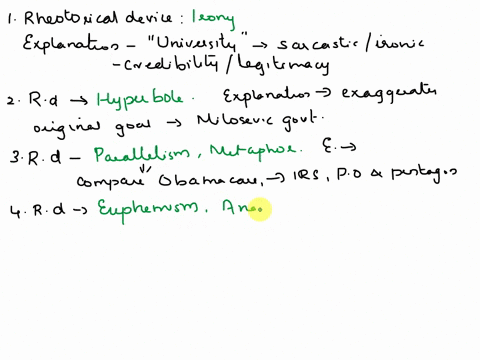 1. Rhetorical device : Irony
Explanation - "University" → sarcastic/ironic
- credibility/legitimacy
2. R.d → Hyperbole. Explanation → exaggerates
original goal → Milosevic govt.
3. R.d - Parallelism, Metaphor. E. →
compare Obamacare, → IRS, P.O &
4. R.d → Euphemism, Ana